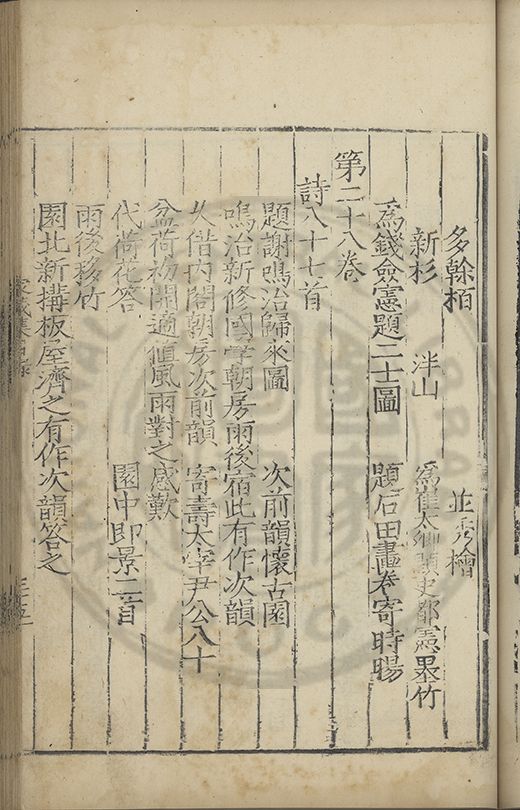 多榦栢　　並秀檜
新杉　泮山　為崔太卿題史都憲墨竹
為錢僉憲題三士圖　題石田畫卷寄時暘
第二十八卷
詩八十七首
題謝鳴治歸來圖　次前韻懷古園
鳴治新修國學朝房雨後宿此有作次韻
久借内閣朝房次前韻　寄壽太宰尹公八十
盆荷初開適值風雨對之感歎
代荷花答　園中即景二首
雨後移竹
園北新搆板屋濟之有作次韻答之
家藏集目錄　三十五